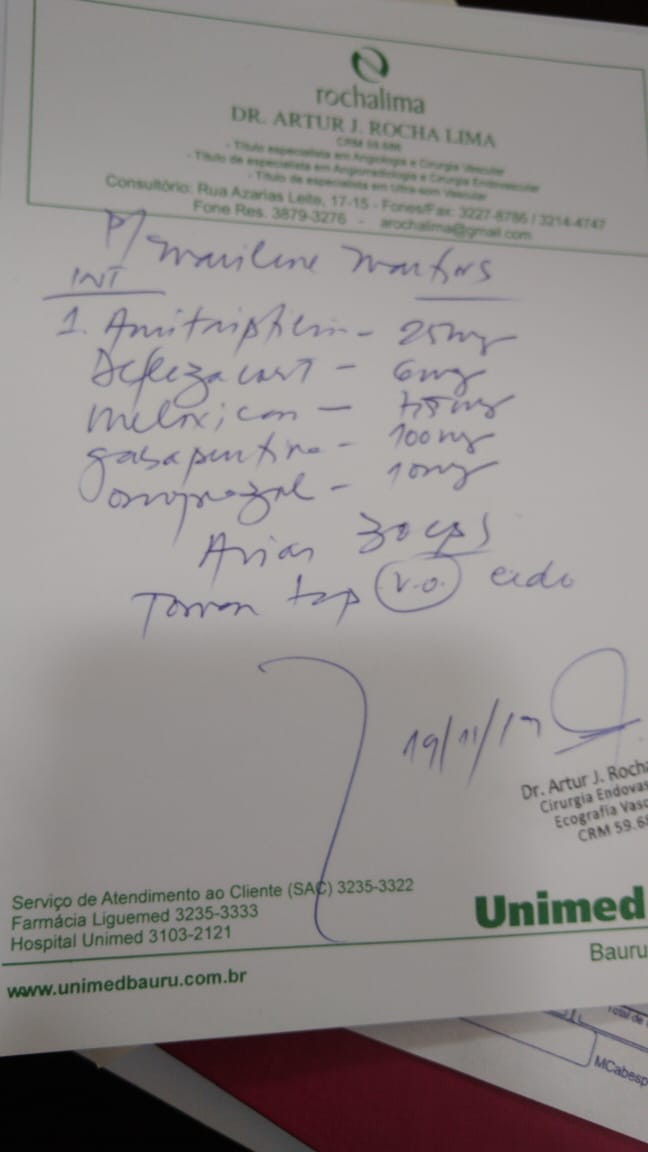 rochalima
DR. ARTUR J. ROCHA LIMA
CRM 59.686
- Título especialista em Angiologia e Cirurgia Vascular
- Título de especialista em Angiorradiologia e Cirurgia Endovascular
- Título de especialista em Ultra-som Vascular
Consultório: Rua Azarias Leite, 17-15 - Fones/Fax: 3227-8786 / 3214-4747
Fone Res. 3879-3276 - arochalima@gmail.com
P/ Marilene Martins
INT
1. Amitriptilin - 25mg
Deflazacort - 6mg
Meloxican - 7,5mg
gabapentina - 100mg
omeprazol - 10mg
Aviar 30 cps
Tomar 1cp V.O. cedo
19/11/17
Dr. Artur J. Rocha
Cirurgia Endovas
Ecografia Vasc
CRM 59.68
Serviço de Atendimento ao Cliente (SAC) 3235-3322
Farmácia Liguemed 3235-3333
Hospital Unimed 3103-2121
Unimed
Bauru
www.unimedbauru.com.br
Total de
MCabesp